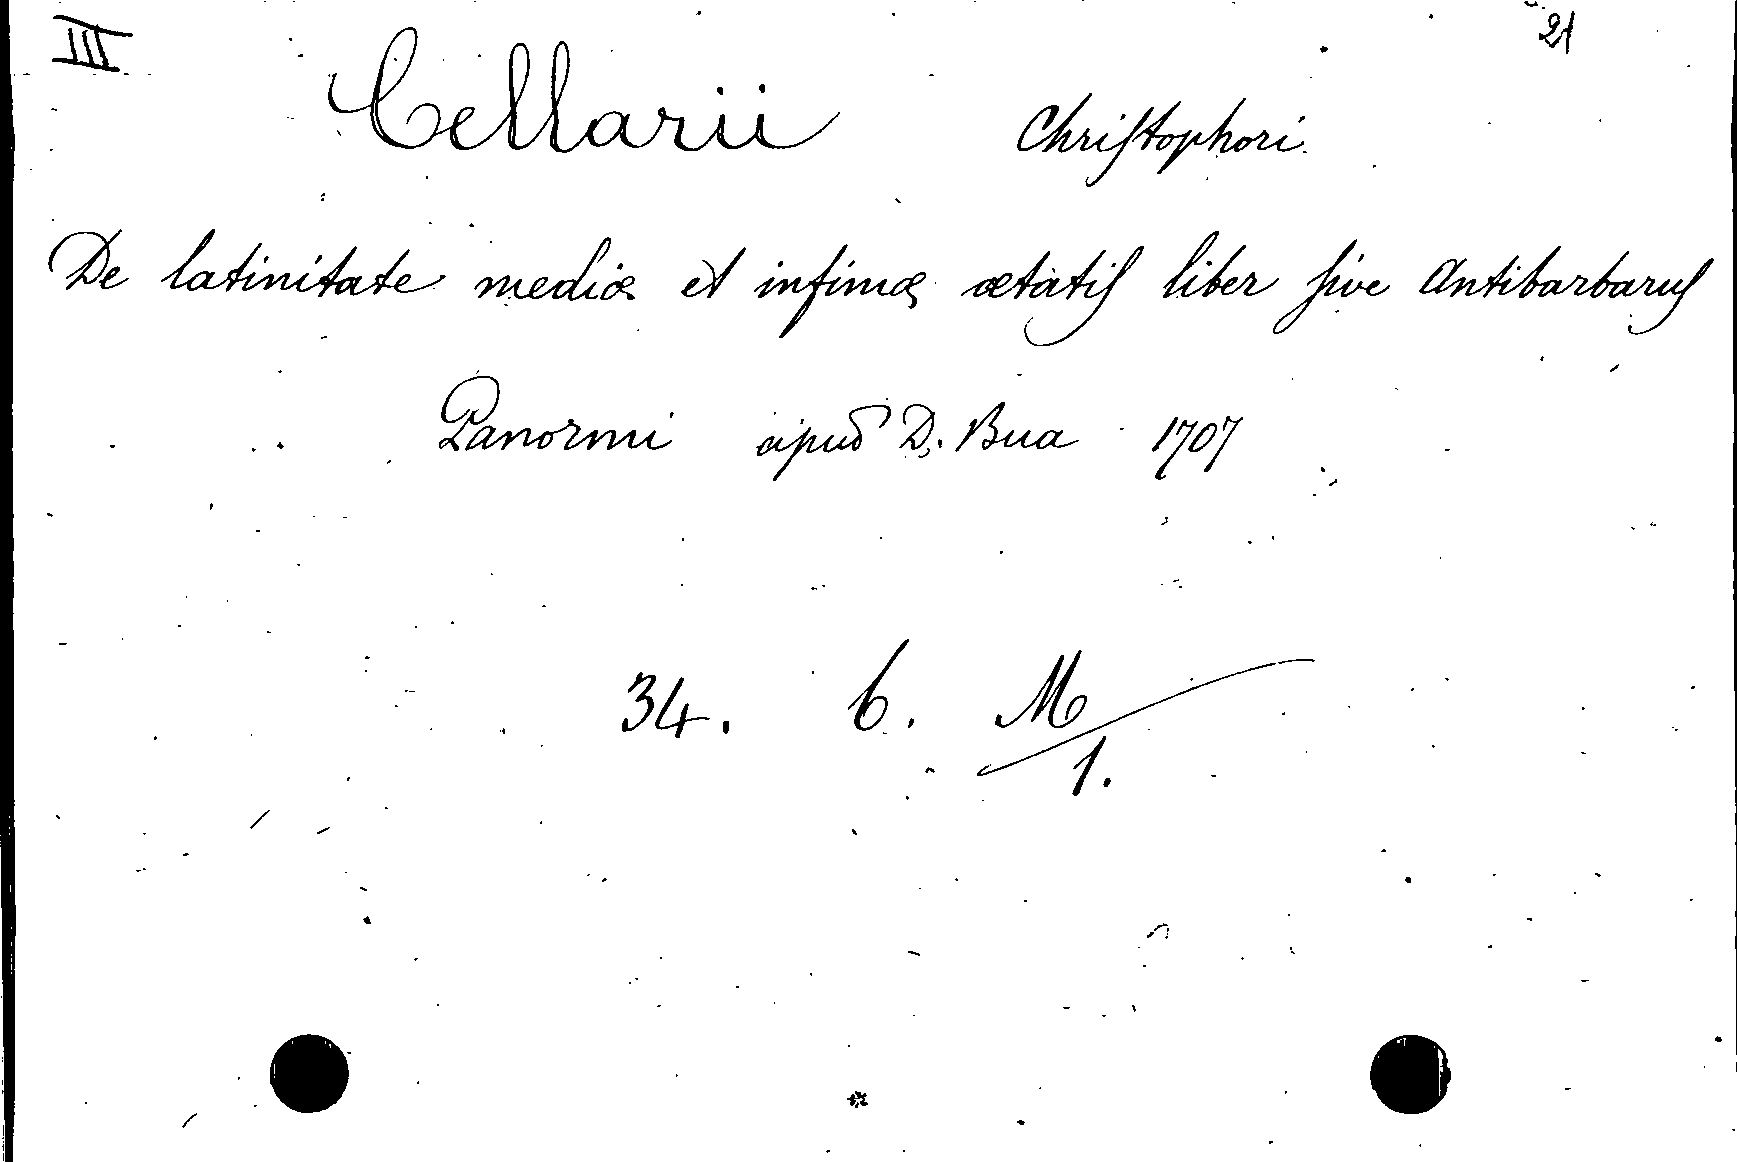 III 21
Cellarii Chriſtophori
De latinitate mediæ et infimæ ætatiſ liber ſive Antibarbaruſ
Panormi apud D. Bua 1707
34. b. M
1.